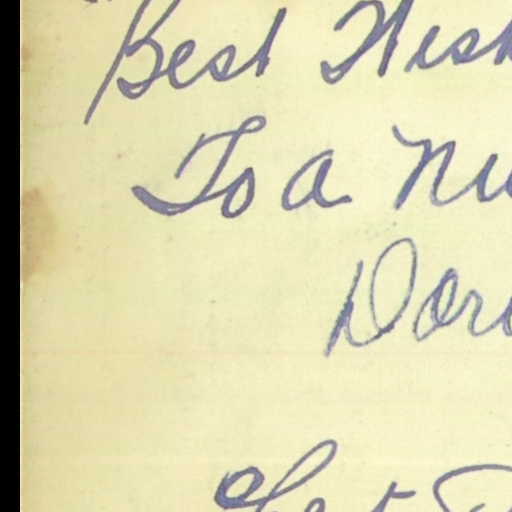 Best Wish
To a Ni
Doro